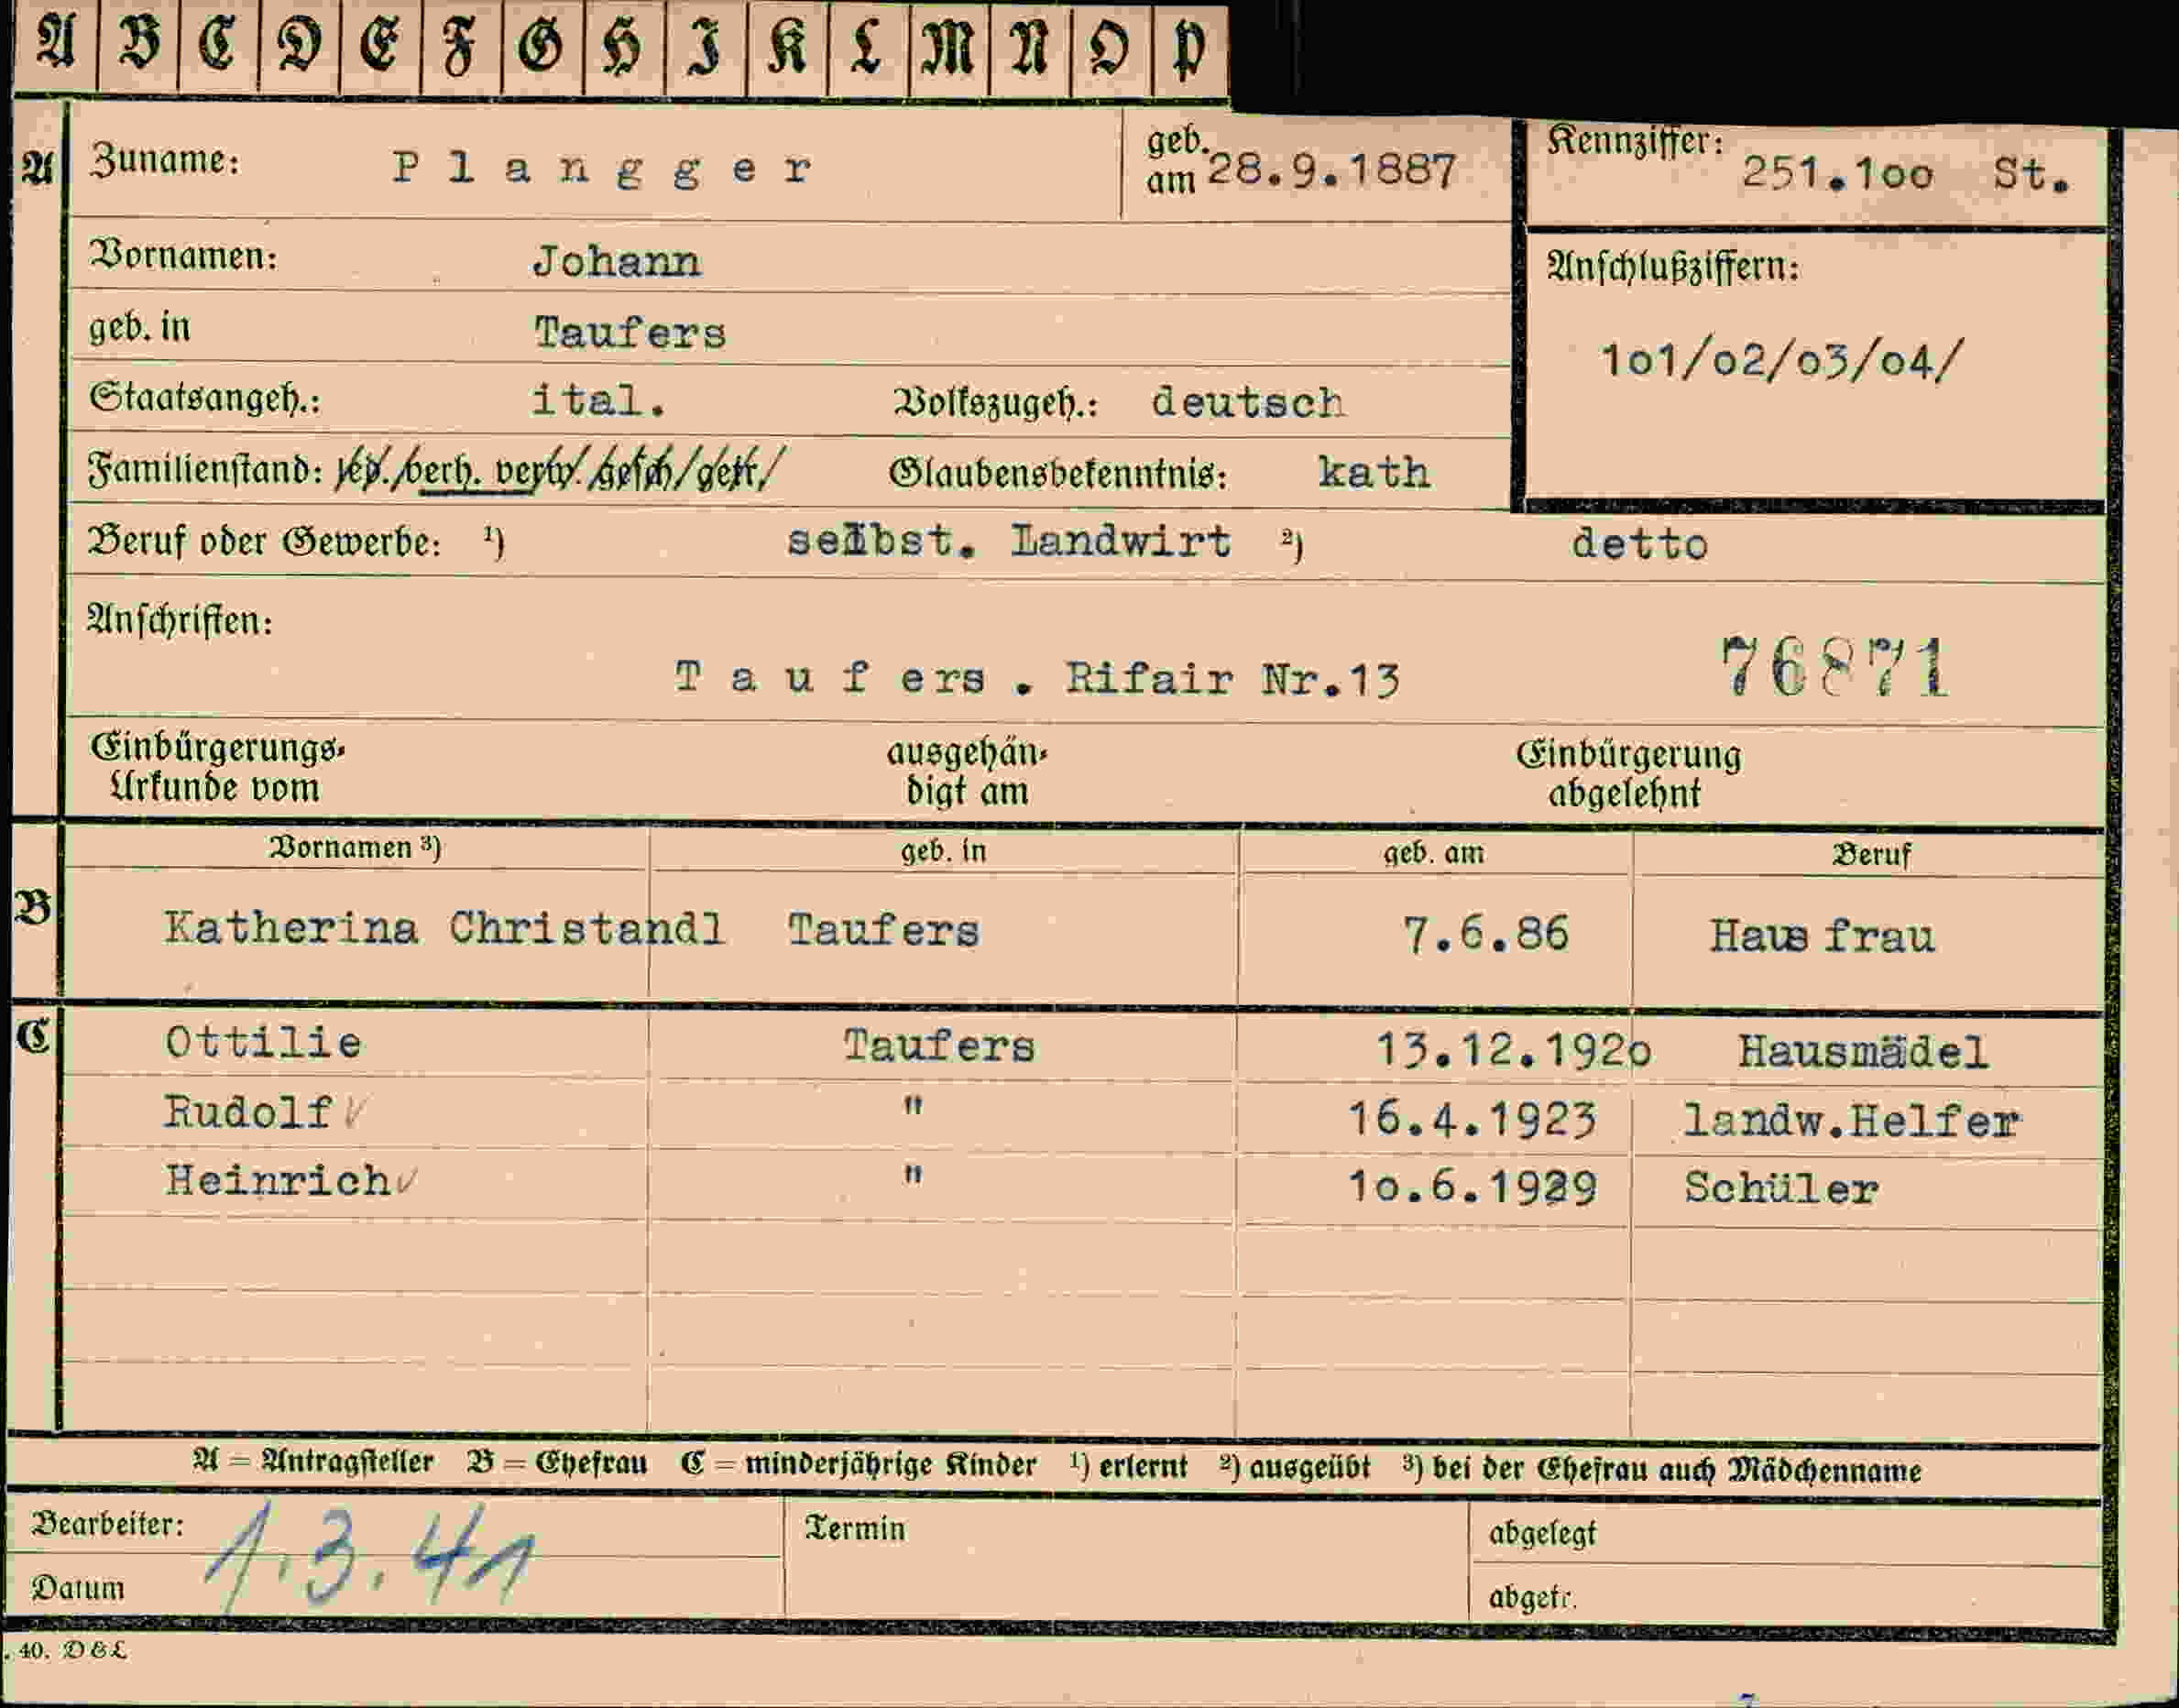 A B C D E F G H I K L M N O P
A Zuname: Plangger geb. am 28.9.1887 Kennziffer: 251.1oo St.
Vornamen: Johann Anschlußziffern:
geb. in Taufers 1o1/o2/o3/o4/
Staatsangeh.: ital. Volkszugeh.: deutsch
Familienstand: led./verh. verw./gesch/getr/ Glaubensbekenntnis: kath
Beruf oder Gewerbe: ¹) selbst. Landwirt ²) detto
Anschriften:
Taufers . Rifair Nr.13 76871
Einbürgerungs- ausgehän- Einbürgerung
Urkunde vom digt am abgelehnt
Vornamen ³) geb. in geb. am Beruf
B Katherina Christandl Taufers 7.6.86 Hausfrau
C Ottilie Taufers 13.12.192o Hausmädel
Rudolf " 16.4.1923 landw.Helfer
Heinrich " 1o.6.1929 Schüler
A = Antragsteller B = Ehefrau C = minderjährige Kinder ¹) erlernt ²) ausgeübt ³) bei der Ehefrau auch Mädchenname
Bearbeiter: 1.3.41 Termin abgelegt
Datum abgetr.
. 40. D&L